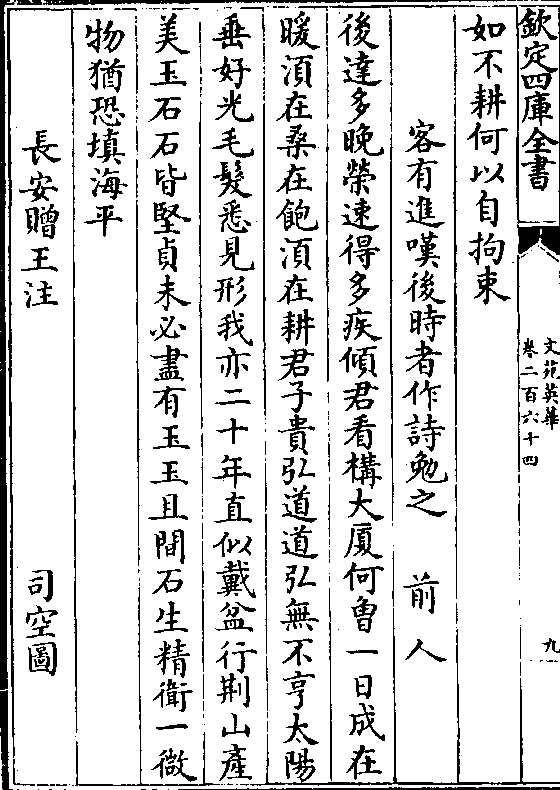 欽定四庫全書
文苑英華
卷二百六十四
九
如不耕何以自拘束
客有進嘆後時者作詩勉之　前人
後達多晚榮速得多疾傾君看構大厦何曾一日成在
暖湏在桑在飽湏在耕君子貴弘道道弘無不亨太陽
垂好光毛髮悉見形我亦二十年直似戴盆行荆山産
美玉石石皆堅貞未必盡有玉玉且間石生精衛一微
物猶恐填海平
長安贈王注　司空圖